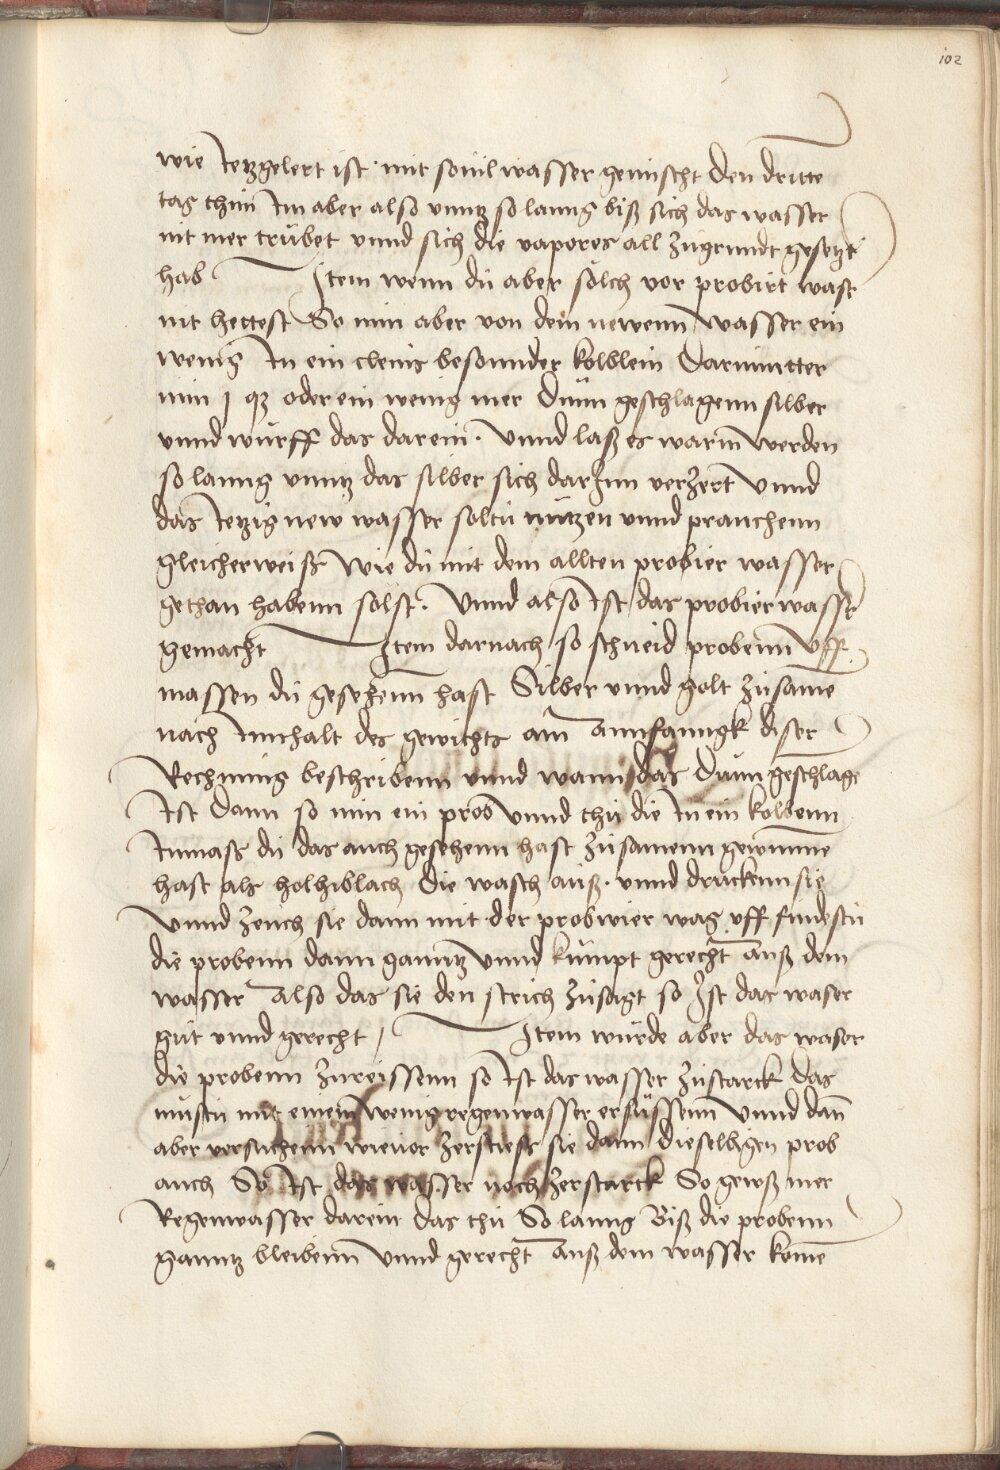 102
wie Ietzgelert ist mit souil wasser gemischt Den dritte
tag thun Im aber also vnntz so lanng biß sich das wasser
nit mer trübet vnnd sich die vapores all zugrundt gesetzt
hab Item wenn dü aber sölch vor probirt wasr
nit hettest So nim aber von dem newenn wasser ein
wenig In ein cleins besonnder kolblein Darnimtter
nim j qz oder ein wenig mer Dünn geschlagenn silber
vnnd würff das darein. Vnnd laß es warm werden
so lanng vnntz das silber sich darInn verzert Vnnd
das Ietzig new wasser soltu nützen vnnd prauchenn
gleicherweiß Wie dü mit dem allten probier wasser
gethan habenn solst. Vnnd also Ist das probier wasser
gemacht Item darnach so schneid probenn Vff
massen dü gesehenn hast Silber vnnd golt züsame
nach Innhalt des gewichts am annfanngk diser
Rechnung beschribenn vnnd wann das Dünn geschlage
Ist Dann so nim ein prob Vnnd thü die In ein kolbenn
Inmass dü das auch gesehenn hast züsamenn gewunne
hast als holhiblach Die wasch auß. vnnd druckenn sie
Vnnd zeuch sie dann mit der probwier wag vff findestu
die probenn dann ganntz Vnnd kumpt gerecht auß dem
wasser Also das sie den strich züsagt so Ist das waser
gut vnnd gerecht / Item würde aber das waser
die probenn zureissenn so Ist das wasser züstarck das
mustu mit einem wenig regenwasser ersüssenn Vnnd dan
aber versuchenn wieuor zerstiess sie dann Dieselbigen prob
auch So Ist das wasser noch zerstarck So gewß mer
Regenwasser darein Das thü So lanng Biß die probenn
ganntz bleibenn Vnnd gerecht Auß dem wasser kome